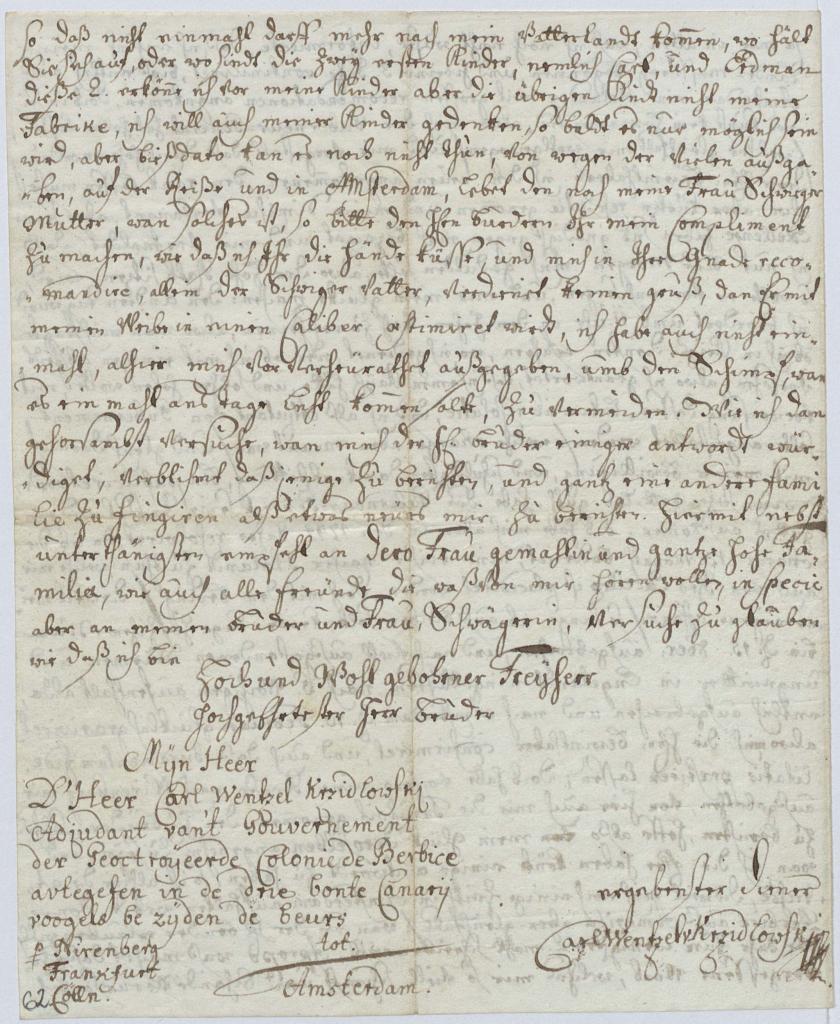 so daß nicht einmahl darff mehr nach mein Vatterlandt kommen, wo hält
Sie sich auf, oder wo sindt die zwey ersten Kinder, nemlich Carl, und Erdman
dieße 2. erköne ich vor meine Kinder aber die übrigen sindt nicht meine
Fabrike, ich will auch meiner Kinder gedenken, so baldt es nur möglich sein
wird, aber bießdato kan es noch nicht thun, von wegen der vielen außga-
-ben, auf der Reiße und in Amsterdam, lebet den noch meine Frau Schwieger
Mutter, wan solches ist, so bitte den Hen bruedern Ihr mein Compliment
zu machen, wie daß ich Ihr die Hände küsse, und mich in Ihre Gnade reco-
-mandire, allein der Schwiger Vatter, verdienet keinen gruß, dan Er mit
meinen Weibe in einen Caliber æstimiret wirdt, ich habe auch nicht ein-
-mahl, alhier mich vor verheurathet außgegeben, umb den Schimpf, wan
es ein mahl ans tage licht kommen solte, zu vermeiden. Wie ich dan
gehorsambst versuche, wan mich der H. bruder einiger antwordt wür-
-diget, verblihmt daßjenige zu berichten, und gantz eine andere Fami
lie zu fingiren alß etwas neues mir zu berichten. Hiermit nebst
unterthänigsten empfehl an Dero Frau gemahlin und gantze hohe Fa-
milie, wie auch alle freünde die waß von mir hören wollen, in specie
aber an meinen bruder und Frau Schwägerin, versuche zu glauben
wie daß ich bin
Hoch und Wohl gebohrner Freyherr
Hochgeehrtester Herr bruder
Mÿn Heer
D'Heer Carl Wentzel Krzidlowskÿ
Adjudant van't Gouvernement
der Geoctroÿeerde Colonie de Berbice
avlegesen in de drie bonte Canarÿ
voogels be zÿden de beurs
ergebenster diener
Carl Wentzel v Krzidlowskÿ
p Nirenberg
tot.
Franckfurt
Amsterdam.
62. Cölln.